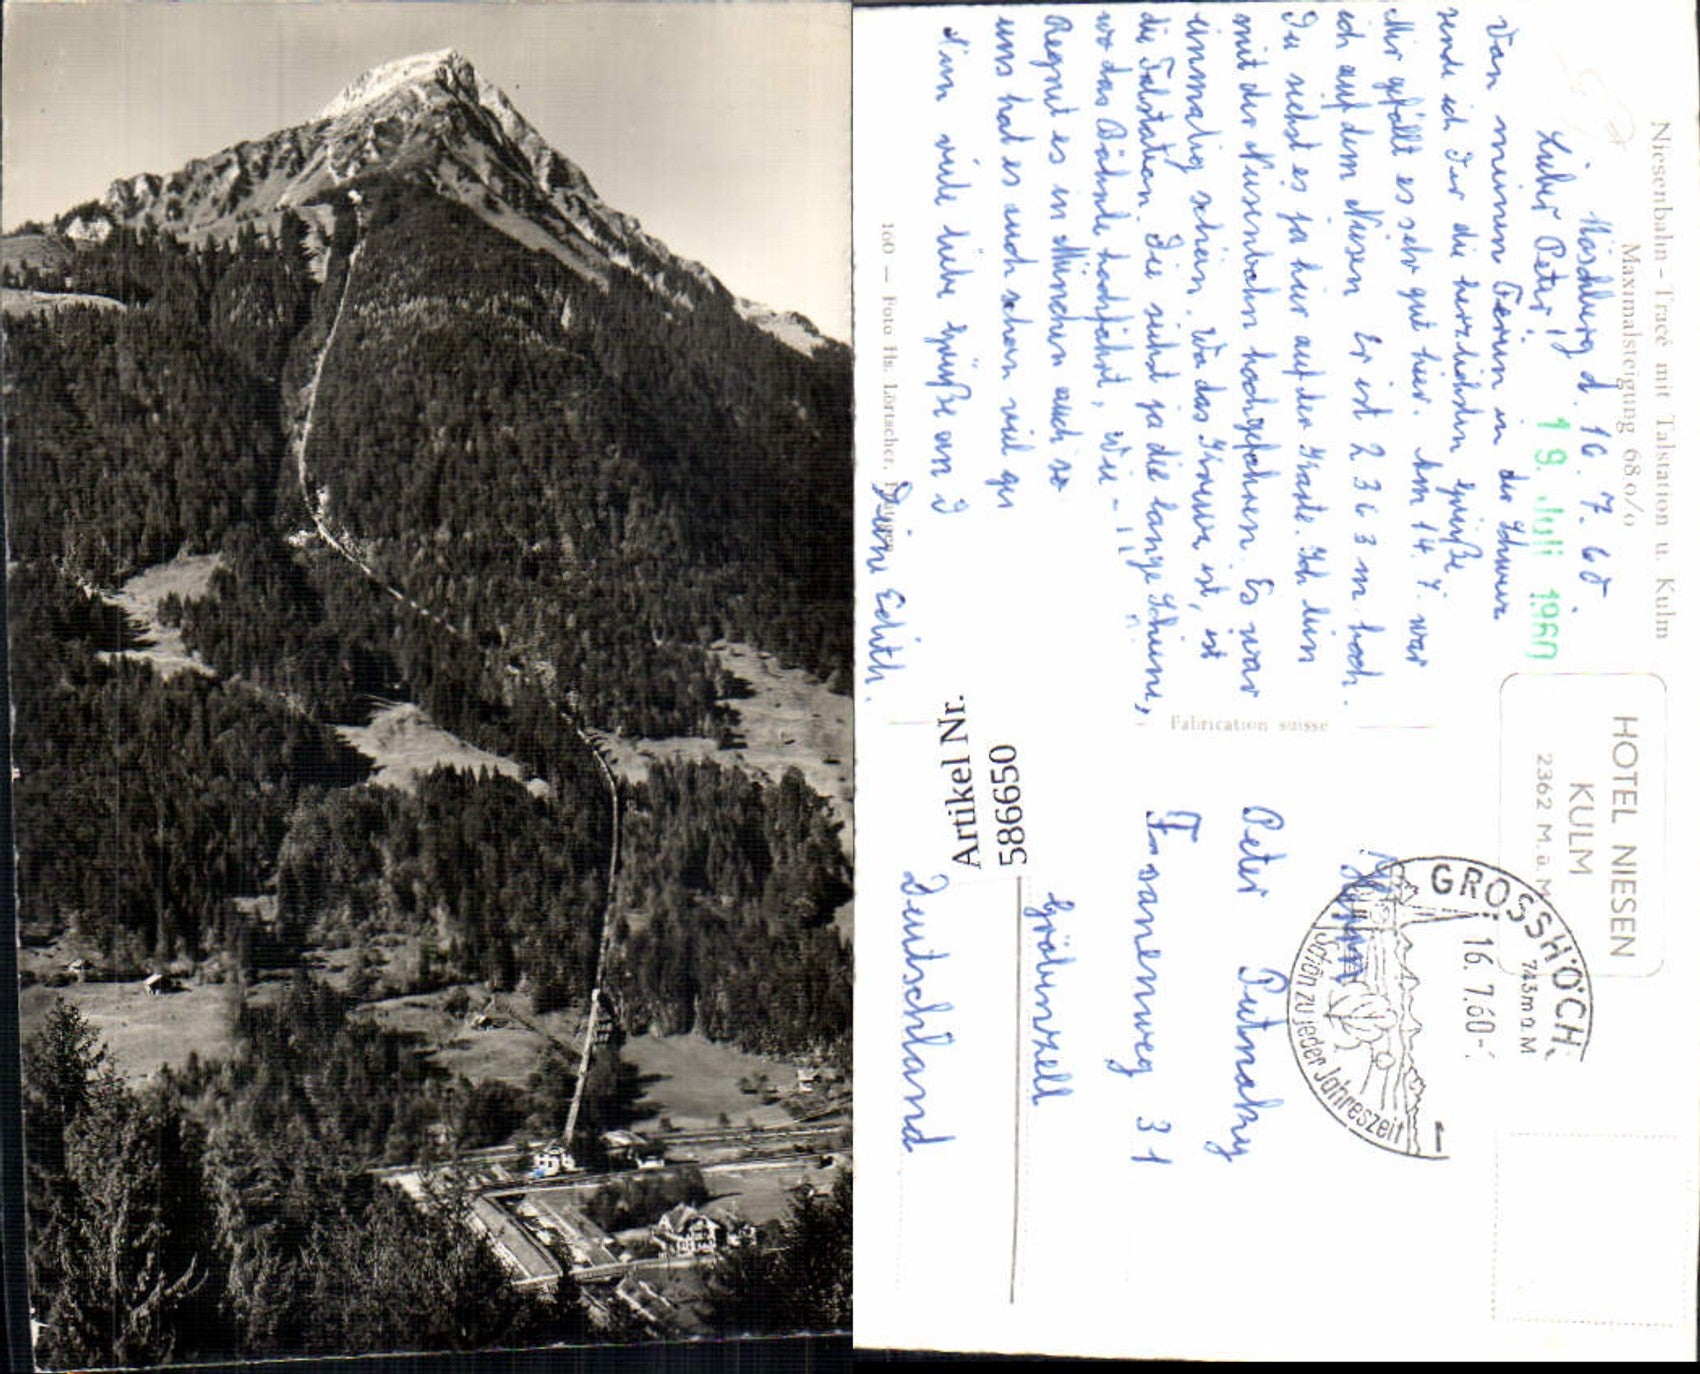 Niesenbahn-Tracé mit Talstation u. Kulm
Maximalsteigung 68 o/o
Möschberg d. 16. 7. 60.
Lieber Peter!
19. Juli 1960
Von meinen Ferien in der Schweiz
sende ich Dir die herzlichsten Grüße.
Mir gefällt es sehr gut hier. Am 14. 7. war
ich auf dem Niesen Er ist 2363 m. hoch.
Du siehst es ja hier auf der Karte. Ich bin
mit der Niesenbahn hochgefahren. Es war
einmalig schön. Wo das Kreuz ist, ist
die Talstation. Die siehst ja die lange Schiene,
wo das Bähnle hochfährt, Wie -
Regnet es in München auch so
uns hat es auch schon viel
Nun viele liebe Grüße an
Deine Edith.
160 — Foto Hs. Lörtscher,
Fabrication suisse
HOTEL NIESEN
KULM
2362 M. ü. M.
GROSSHÖCH
743m ü. M
16. 7. 60-
Schön zu jeder Jahreszeit
1
Peter
Fasanenweg 31
Gröbenzell
Deutschland
Artikel Nr.
586650